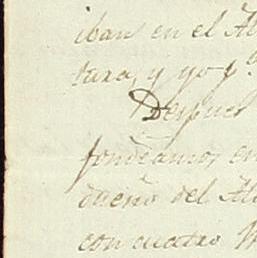 iban en el Al
tura, y yo y
Despues
fondeamos en
dueño del Al
con cuatro